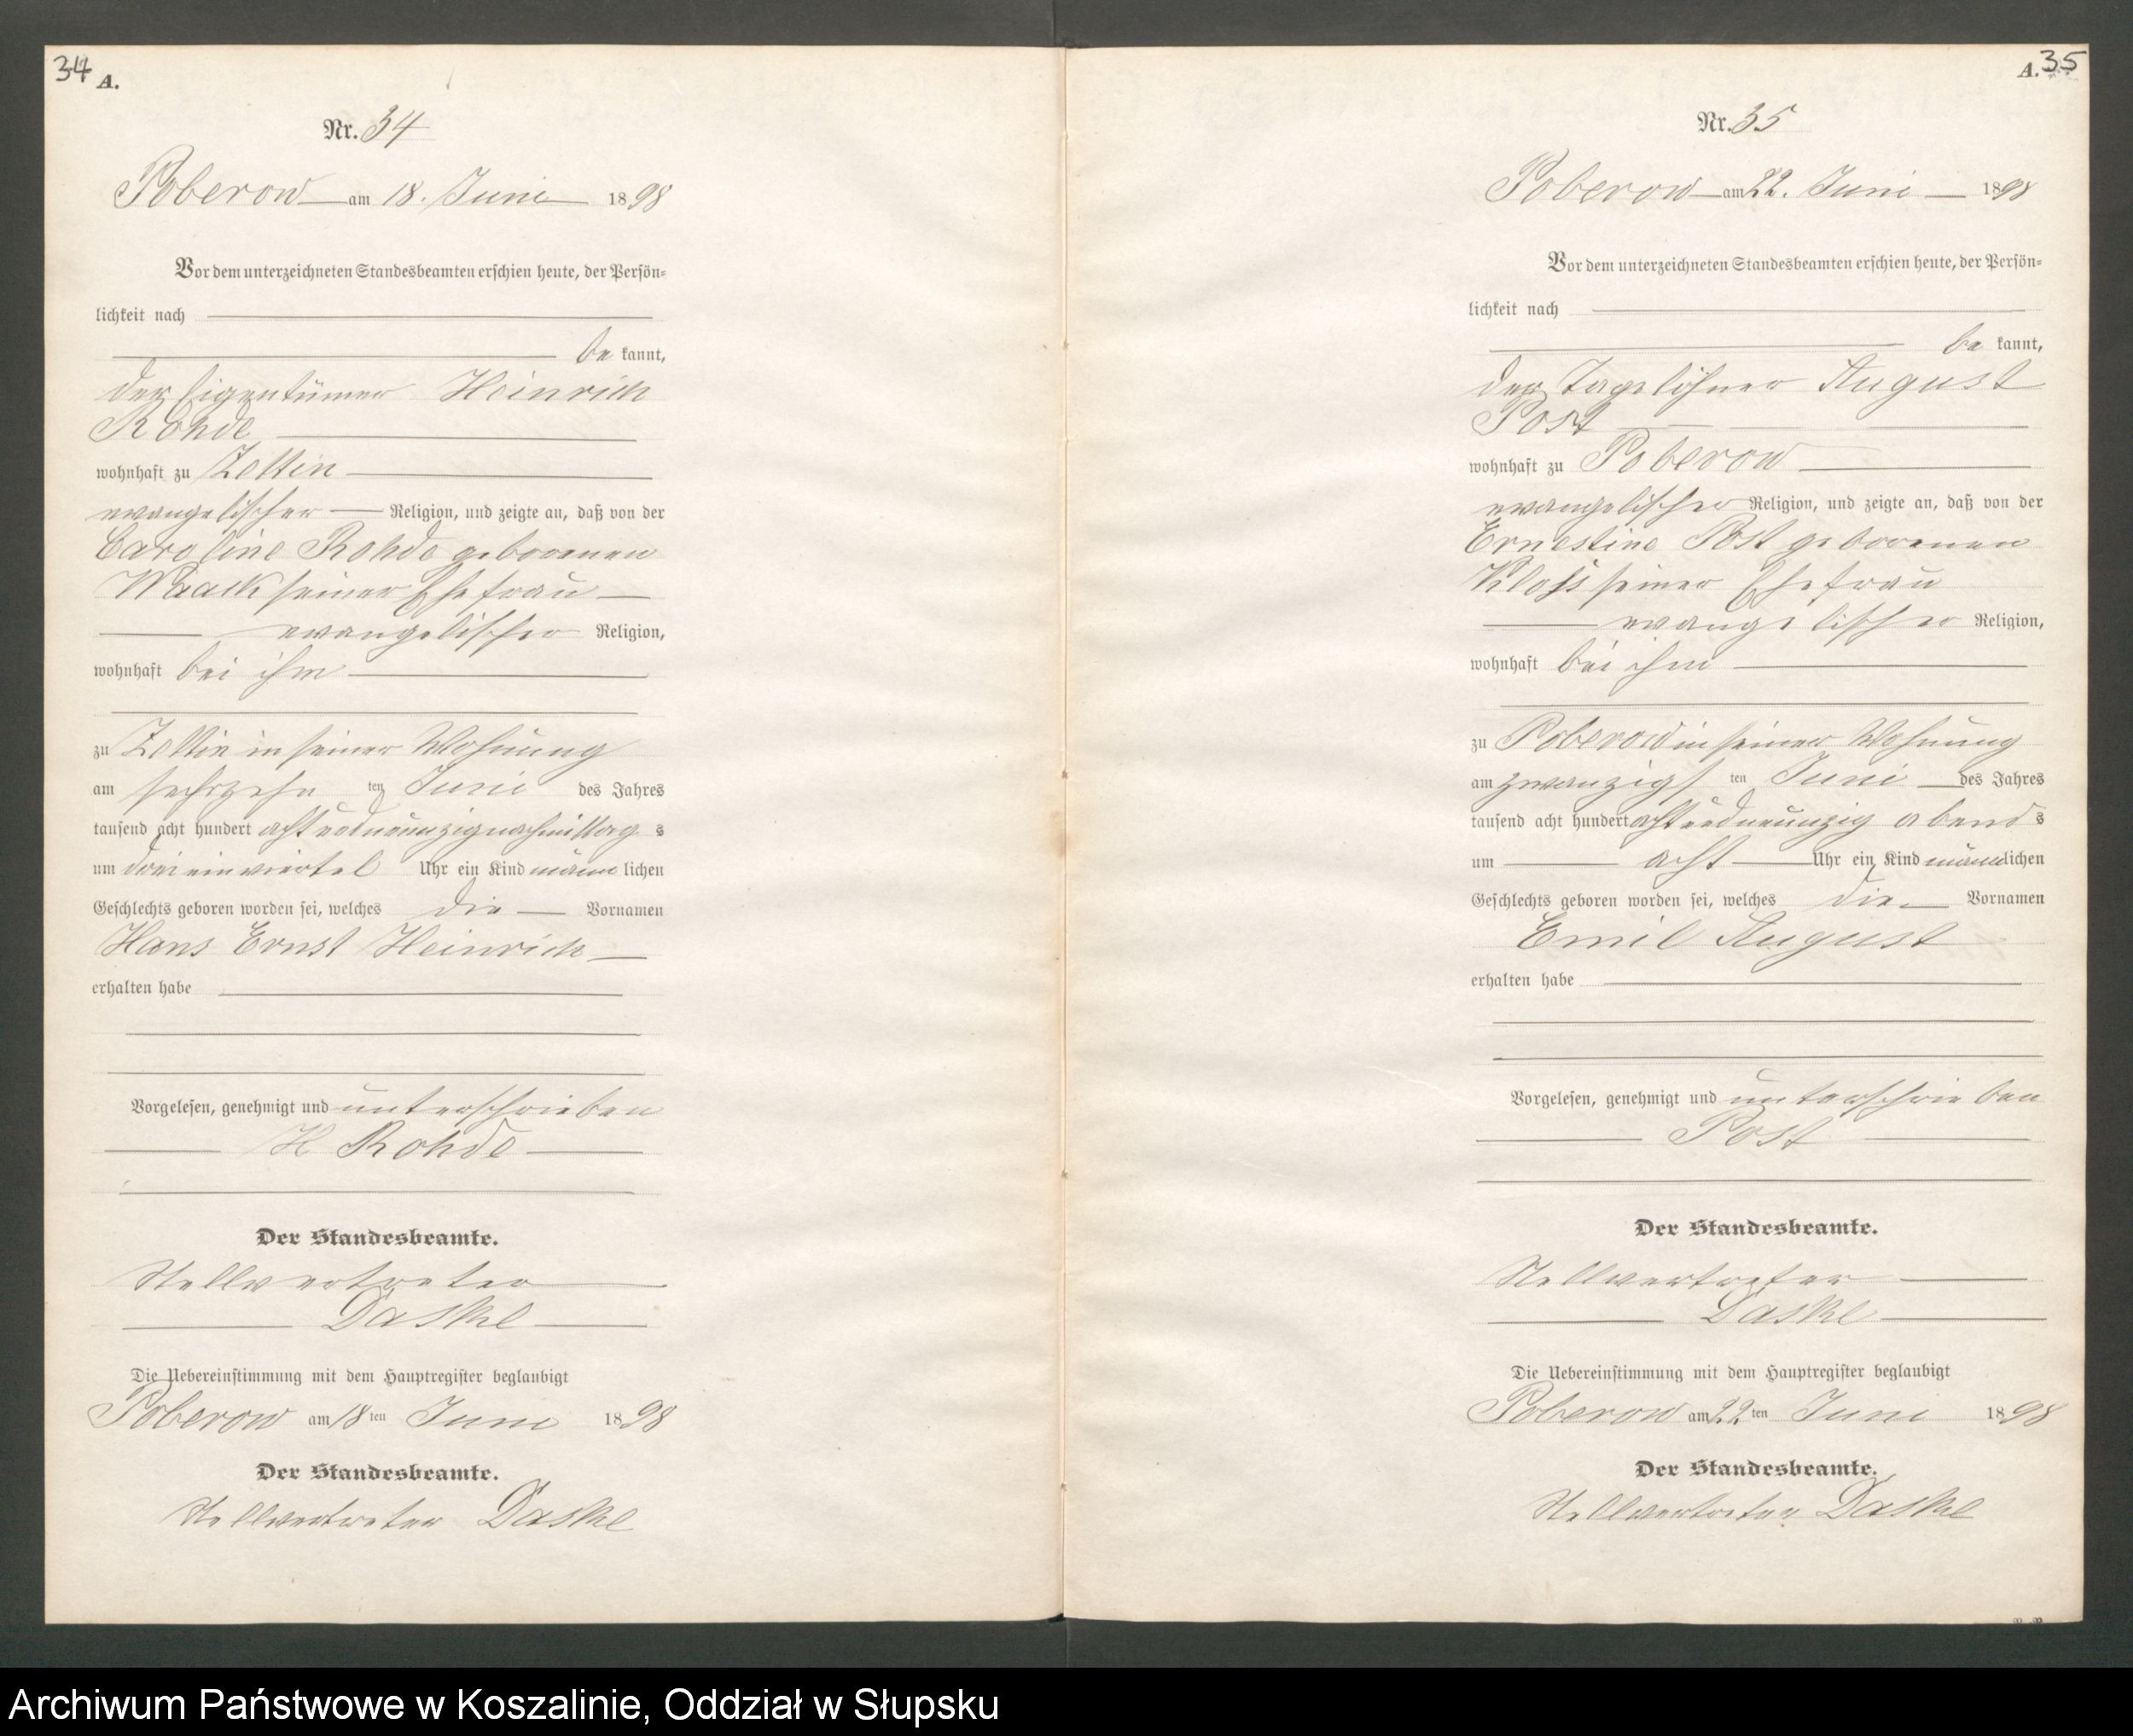 34 A.
Nr. 34
Poberow am 18. Juni 1898
Vor dem unterzeichneten Standesbeamten erschien heute, der Persön-
lichkeit nach
be kannt,
der Eigentümer Heinrich
Rohde
wohnhaft zu Zettin
evangelischer Religion, und zeigte an, daß von der
Caroline Rohde geborenen
Waack seiner Ehefrau
evangelischer Religion,
wohnhaft bei ihm
zu Zettin in seiner Wohnung
am sechszehn ten Juni des Jahres
tausend acht hundert acht und neunzig nachmittag s
um drei einviertel Uhr ein Kind männ lichen
Geschlechts geboren worden sei, welches die Vornamen
Hans Ernst Heinrich
erhalten habe
Vorgelesen, genehmigt und unterschrieben
H Rohde
Der Standesbeamte.
Stellvertreter
Daske
Die Uebereinstimmung mit dem Hauptregister beglaubigt
Poberow am 18 ten Juni 1898
Der Standesbeamte.
Stellvertreter Daske
A. 35
Nr. 35
Poberow am 22. Juni 1898
Vor dem unterzeichneten Standesbeamten erschien heute, der Persön-
lichkeit nach
be kannt,
der Tagelöhner August
Post
wohnhaft zu Poberow
evangelischer Religion, und zeigte an, daß von der
Ernestine Post geborenen
Kloss seiner Ehefrau
evangelischer Religion,
wohnhaft bei ihm
zu Poberow in seiner Wohnung
am zwanzigs ten Juni des Jahres
tausend acht hundert acht und neunzig abend s
um acht Uhr ein Kind männlichen
Geschlechts geboren worden sei, welches die Vornamen
Emil August
erhalten habe
Vorgelesen, genehmigt und unterschrieben
Post
Der Standesbeamte.
Stellvertreter
Daske
Die Uebereinstimmung mit dem Hauptregister beglaubigt
Poberow am 22 ten Juni 1898
Der Standesbeamte.
Stellvertreter Daske
Archiwum Państwowe w Koszalinie, Oddział w Słupsku